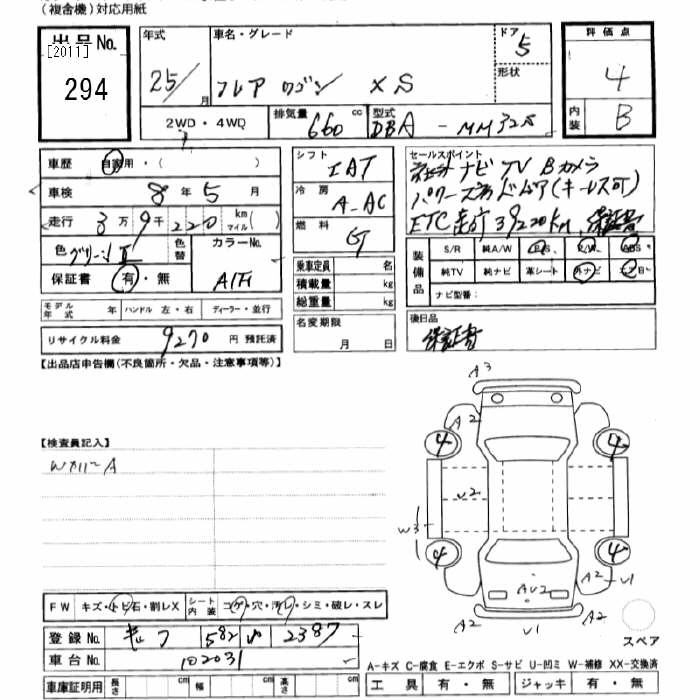 (複合機)対応用紙
出品No. [2011] 294
年式 25/ 月
車名・グレード フレア ワゴン XS
ドア 5
形状
評価点 4
内装 B
2WD・4WD
排気量 660 cc
型式 DBA-MM32S
車歴 自家用・( )
車検 8年 5月
走行 3万 9千 220 km マイル( )
色 グリーンII
色替
カラーNo.
保証書 有・無
シフト IAT
冷房 A-AC
燃料 G
乗車定員 名
積載量 kg
総重量 kg
名変期限 月 日
セールスポイント
ナビ TV Bカメラ
(キーレス可)
ETC 走行 39220km、保証書
装備品
S/R 純A/W P/S P/W ABS
純TV 純ナビ 革シート 外ナビ エアB
ナビ型番:
後日品
保証書
モデル年式 年 ハンドル 左・右 ディーラー・並行
リサイクル料金 9270 円 預託済
【出品店申告欄(不良箇所・欠品・注意事項等)】
【検査員記入】
A3
A2
4 4
U2
W3
4 4
A2
AU2
A2 U1
A2 U1 A2
FW キズ・トビ石・割レX
シート内装 コゲ・穴・汚レ・シミ・破レ・スレ
登録No. 582 2387
車台No. 102031
車庫証明用 長さ cm 幅 cm 高さ cm
スペア
A-キズ C-腐食 E-エクボ S-サビ U-凹ミ W-補修 XX-交換済
工具 有・無 ジャッキ 有・無